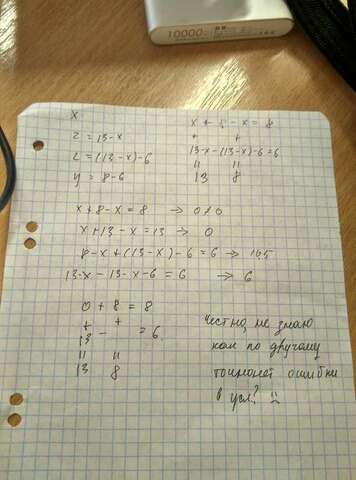 10000
x
z = 13-x
z = (13-x)-6
y = 8-6
x + 8 - x = 8
+ +
13-x-(13-x)-6=6
|| ||
13 8
x+8-x=8 →
x+13-x=13 → 0
8-x+(13-x)-6=6 →
13-x-13-x-6=6 → 6
0+8=8
+ +
13 - =6
|| ||
13 8
Честно, не знаю
как по другому
может ошибки
в усл?